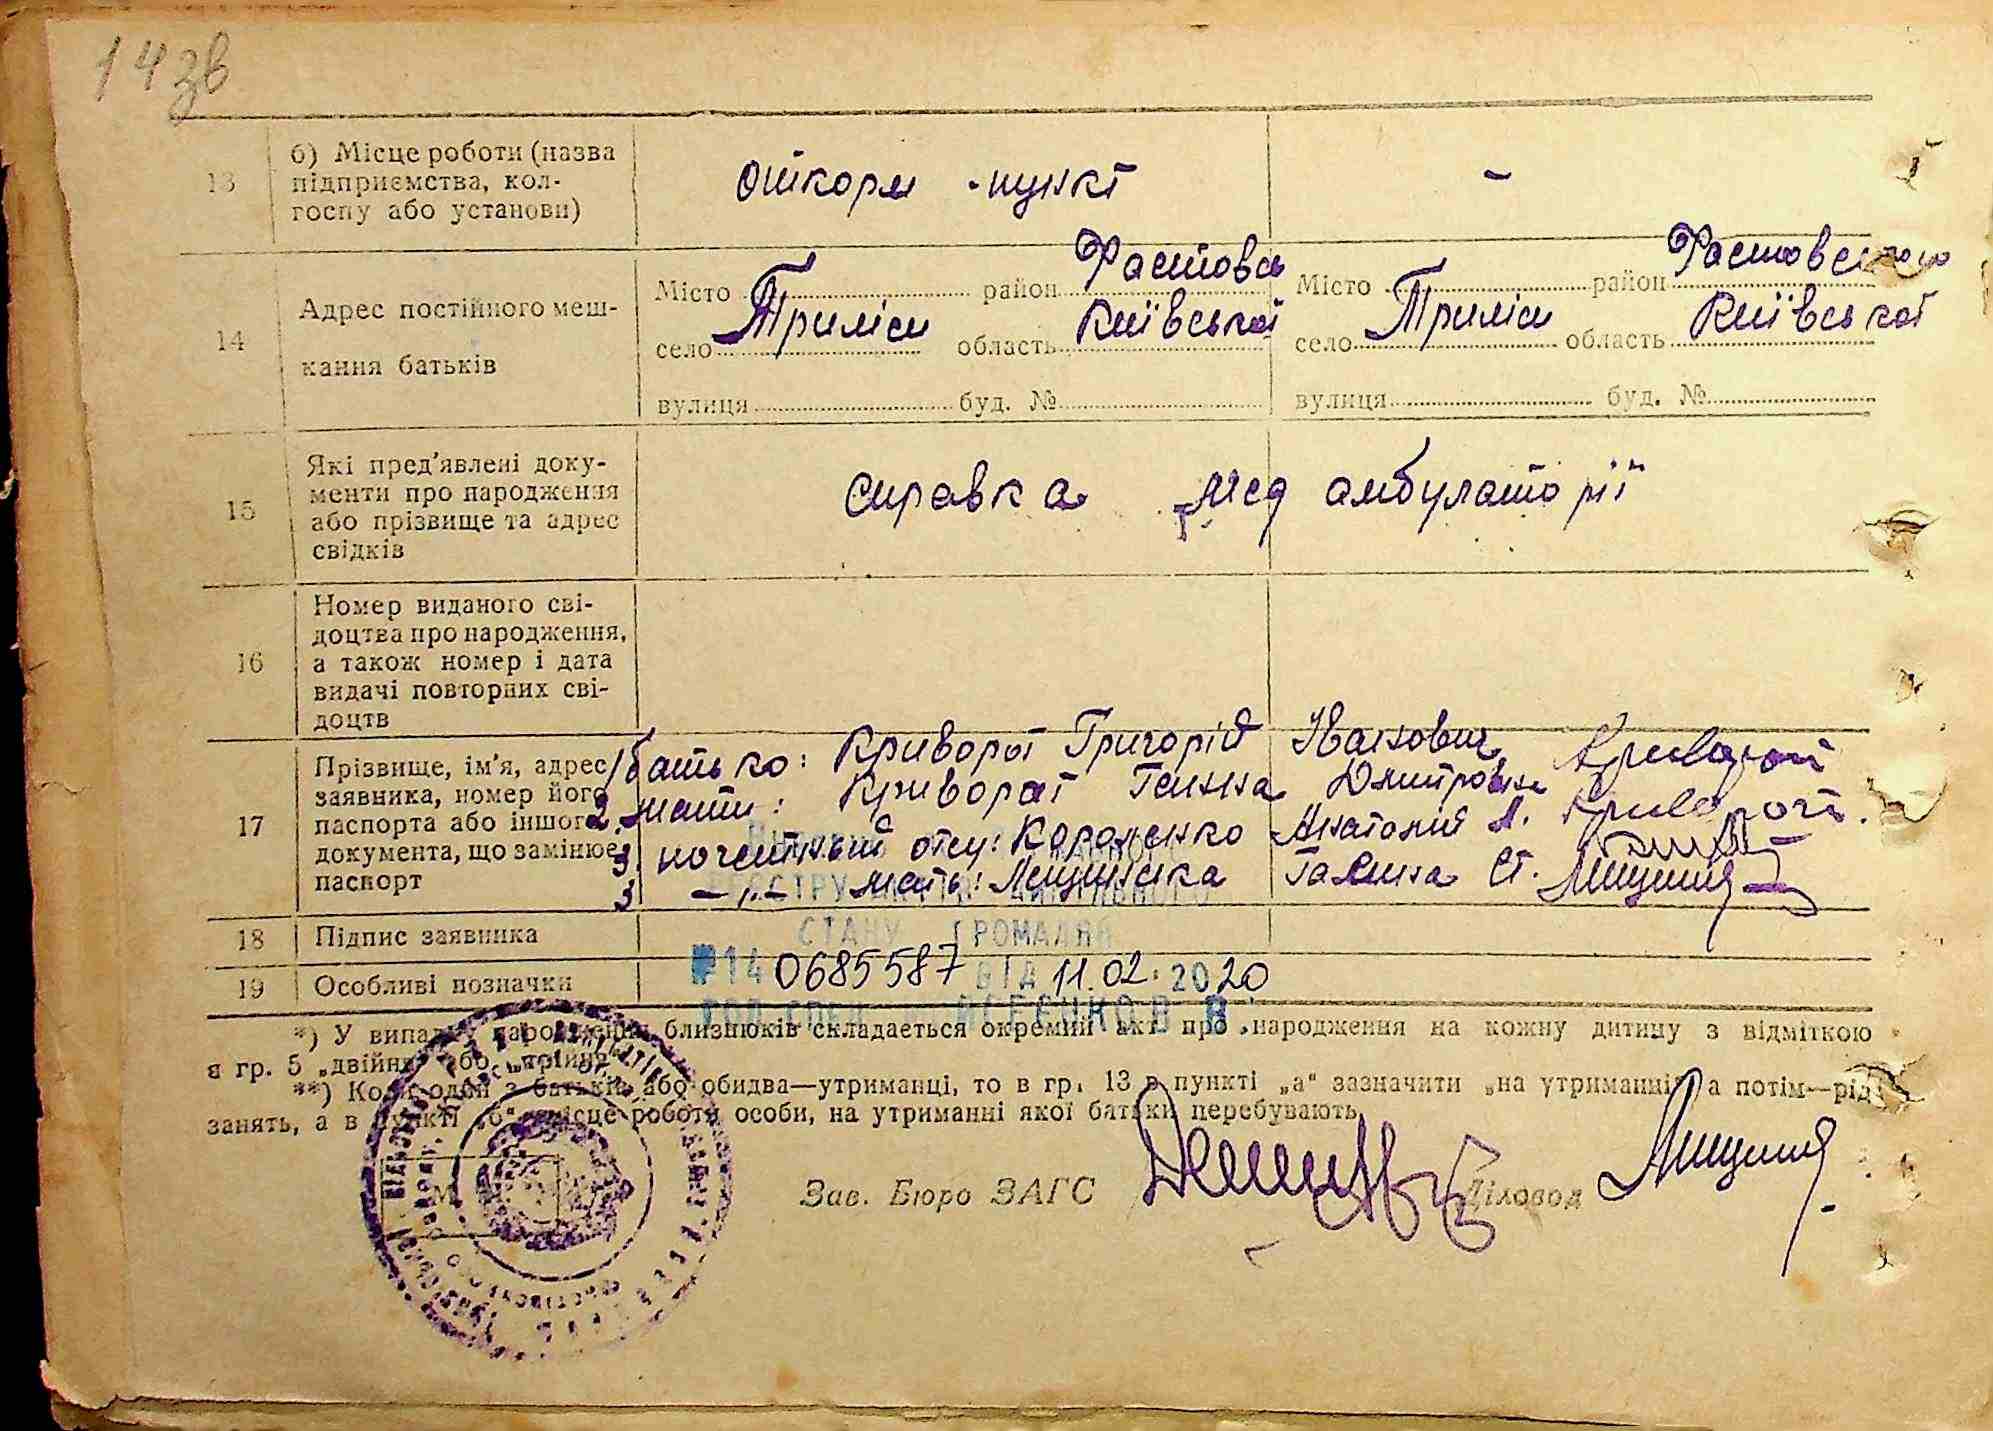 14 зв
13
б) Місце роботи (назва
підприємства, кол-
госпу або установи)
откорм пункт
-
14
Адрес постійного меш-
кання батьків
Місто район Фастовсь
село Триліси область Київської
вулиця буд. №
Місто район Фастовського
село Триліси область Київської
вулиця буд. №
15
Які пред'явлені доку-
менти про народження
або прізвище та адрес
свідків
справка мед амбулаторії
16
Номер виданого сві-
доцтва про народження,
а також номер і дата
видачі повторних сві-
доцтв
17
Прізвище, ім'я, адрес
заявника, номер його
паспорта або іншого
документа, що замінює
паспорт
1 батько: Криворот Григорій Іванович
2. мати: Криворот Ганна Дмитровна
3. почетный отец: Короленко Анатолій А.
3 -"- мать: Лещинська Галина Ст.
РЕЄСТРУ АКТІВ ЦИВІЛЬНОГО
СТАНУ ГРОМАДЯН
18
Підпис заявника
19
Особливі позначки
№14 0685587 ВІД 11.02.2020
*) У випадку народження близнюків складається окремий акт про народження на кожну дитину з відміткою
в гр. 5 „двійня" або „трійня"
**) Коли один з батьків або обидва—утриманці, то в гр. 13 в пункті „а" зазначити „на утриманні", а потім—рід
занять, а в пункті „б" місце роботи особи, на утриманні якої батьки перебувають.
Зав. Бюро ЗАГС
Діловод